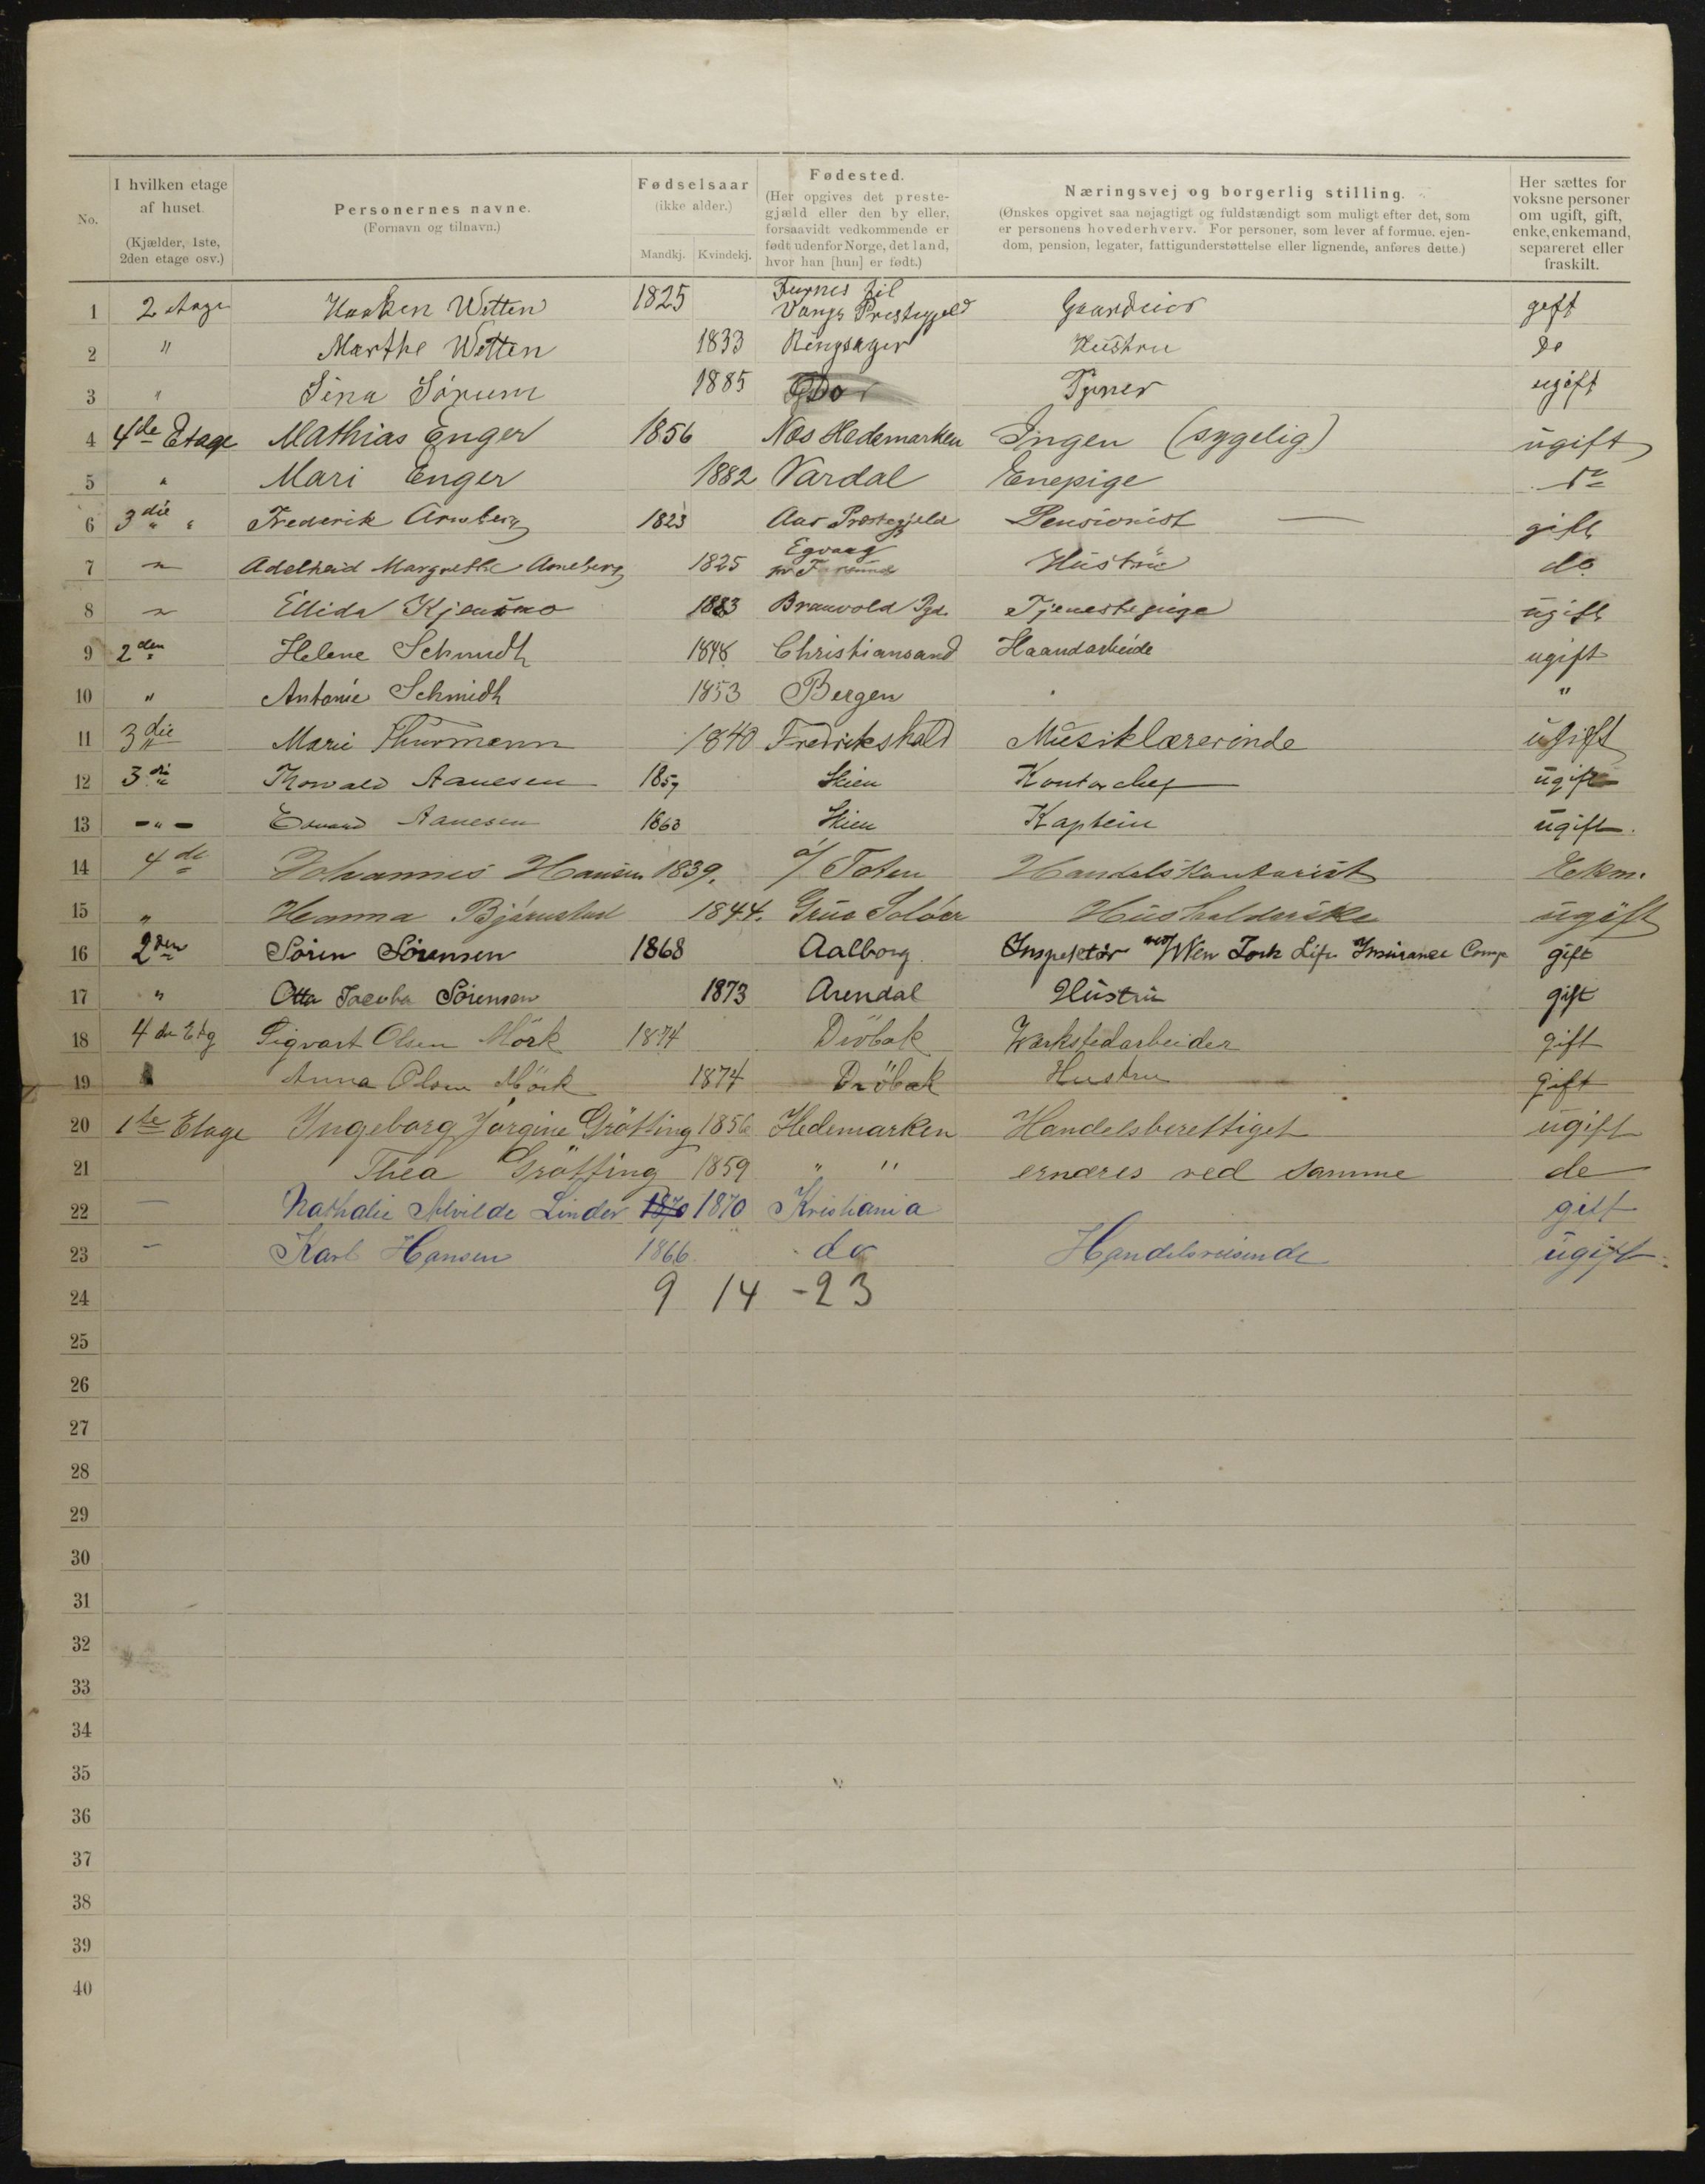 No.
I hvilken etage af huset. (Kjælder, 1ste, 2den etage osv.)
Personernes navne. (Fornavn og tilnavn.)
Fødselsaar (ikke alder.) Mandkj. Kvindekj.
Fødested. (Her opgives det prestegjæld eller den by eller, forsaavidt vedkommende er født udenfor Norge, det land, hvor han [hun] er født.)
Næringsvej og borgerlig stilling. (Ønskes opgivet saa nøjagtigt og fuldstændigt som muligt efter det, som er personens hovederhverv. For personer, som lever af formue, ejendom, pension, legater, fattigunderstøttelse eller lignende, anføres dette.)
Her sættes for voksne personer om ugift, gift, enke, enkemand, separeret eller fraskilt.
1 2 etage Haaken Wetten 1825 Furnes til Vangs Prestegjeld Gaardeier gift
2 " Marthe Wetten 1833 Ringsager Hustru Do
3 " Sina Sörum 1885 Do Tjener ugift
4 4de Etage Mathias Enger 1856 Næs Hedemarken Ingen (sygelig) ugift
5 " Mari Enger 1882 Vardal Enepige do
6 3die " " Frederik Arneberg 1823 Aas Prestegjeld Pensionist — gift
7 " Adelheid Margrethe Arneberg 1825 Egvaag Hustru do
8 " Ellida 1883 Branvold Pgd. Tjenestepige ugift
9 2den Helene Schmidt 1848 Christiansand Haandarbeide ugift
10 " Antonie Schmidt 1853 Bergen " "
11 3die Marie Thurmann 1840 Fredrikshald Musiklærerinde ugift
12 3die Thorvald Aanesen 1859 Skien Kontorchef ugift
13 -"- Edvard Aanesen 1863 Skien Kaptein ugift.
14 4de Johannes Hansen 1839. Ø/Toten Handelskontorist Ekm.
15 " Hanna Bjørnstad 1844. Grue Soløer Husholderske ugift
16 2den Sören Sörensen 1868 Aalborg Inspektör ved/New York Life Insurance Comp gift
17 " Otta Jacoba Sörensen 1873 Arendal Hustru gift
18 4de Etg Sigvart Olsen Mörk 1874 Dröbak Værkstedarbeider gift
19 " Anna Olsen Mörk 1874 Dröbak Hustru gift
20 1ste Etage Ingeborg Jørgine Grötting 1856 Hedemarken Handelsberettiget ugift
21 Thea Grötting 1859 " " ernæres ved samme do
22 — Nathalie Alvilde Linder 1870 1870 Kristiania gift
23 — Karl Hansen 1866 do Handelsreisende ugift.
24 9 14 -23
25
26
27
28
29
30
31
32
33
34
35
36
37
38
39
40